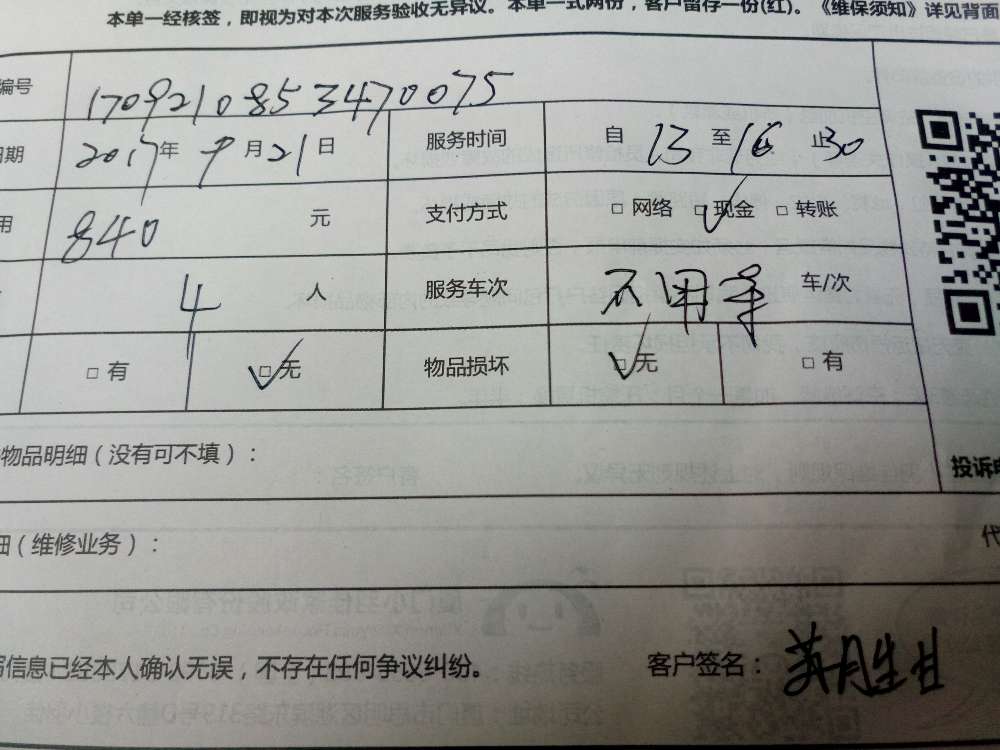 本单一经核签，即视为对本次服务验收无异议。本单一式两份，客户留存一份(红)。《维保须知》详见背面
编号 170921085347 0075
日期 2017年 9月21日 服务时间 自 13 至 16 止30
用 840 元 支付方式 □ 网络 □ 现金 □ 转账
4 人 服务车次 不用车 车/次
□ 有 □ 无 物品损坏 □ 无 □ 有
物品明细（没有可不填）：
投诉电
细（维修业务）：
代
写信息已经本人确认无误，不存在任何争议纠纷。 客户签名：